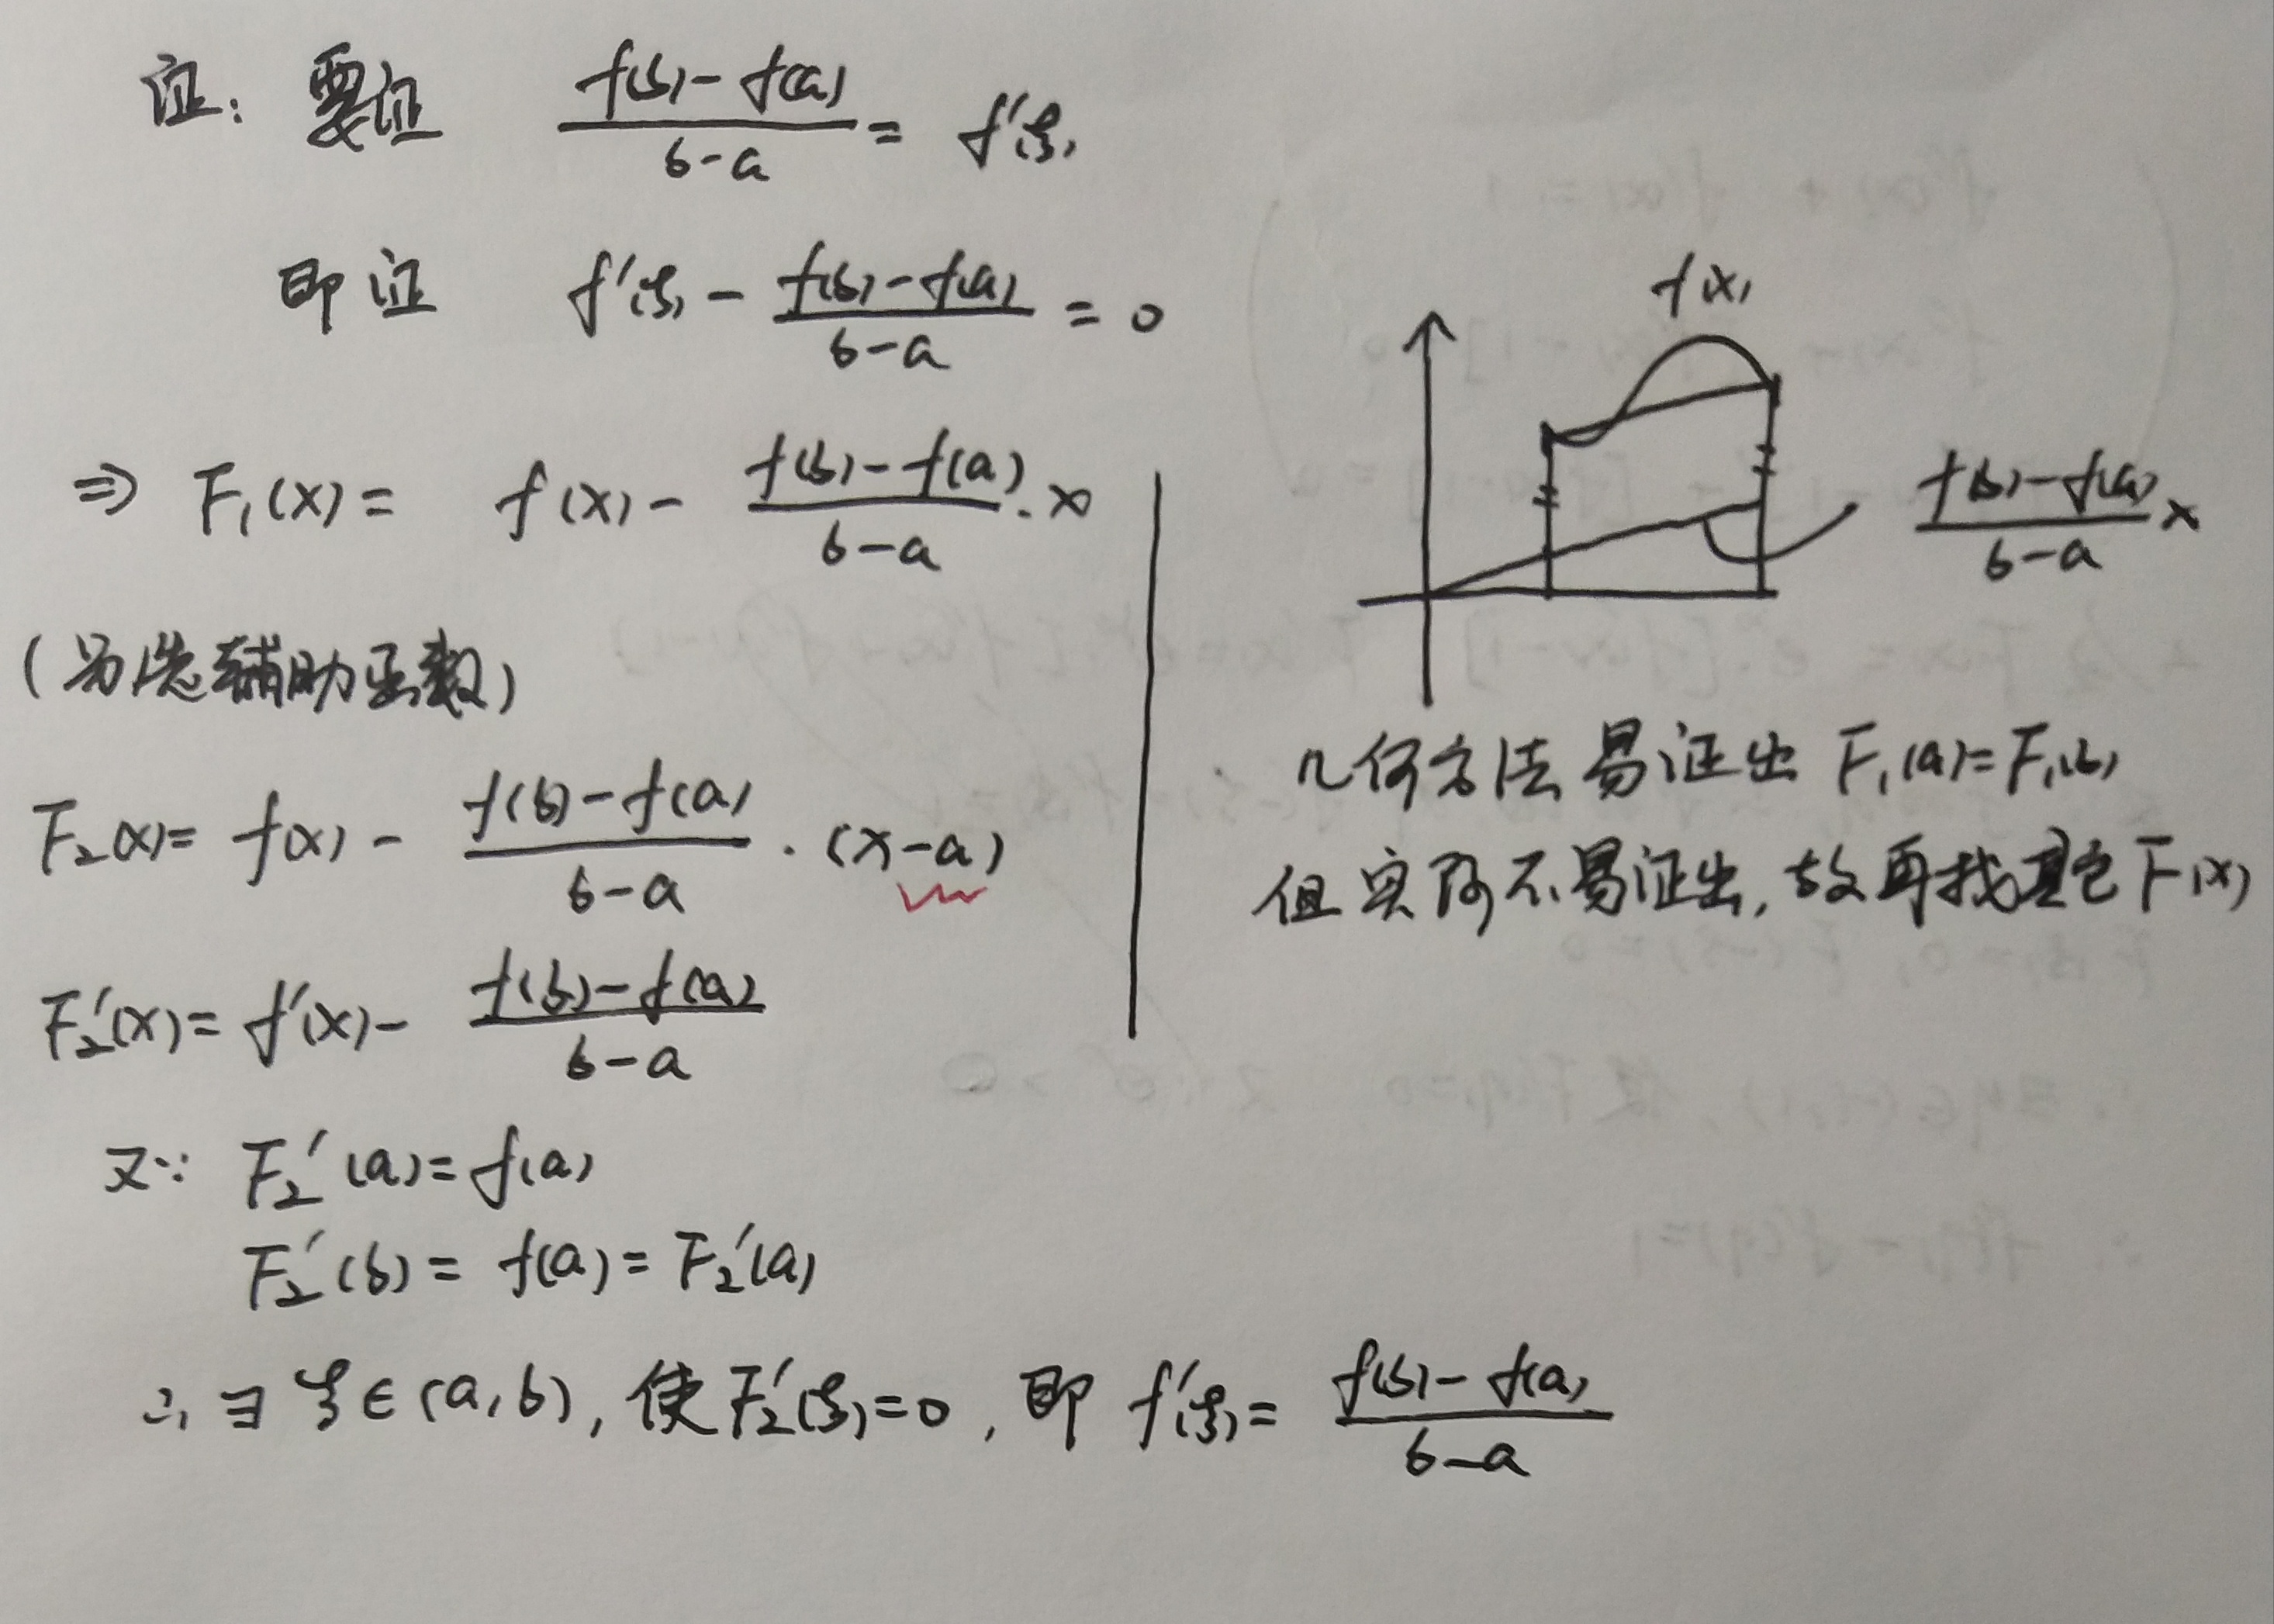 证：要证 \frac{f(b)-f(a)}{b-a} = f'(ξ)
即证 f'(ξ) - \frac{f(b)-f(a)}{b-a} = 0
⇒ F₁(x) = f(x) - \frac{f(b)-f(a)}{b-a}·x
(另选辅助函数)
F₂(x) = f(x) - \frac{f(b)-f(a)}{b-a}·(x-a)
F₂'(x) = f'(x) - \frac{f(b)-f(a)}{b-a}
又∵ F₂'(a) = f(a)
F₂'(b) = f(a) = F₂'(a)
∴ ∃ ξ∈(a,b), 使F₂'(ξ)=0, 即 f'(ξ) = \frac{f(b)-f(a)}{b-a}
f(x)
\frac{f(b)-f(a)}{b-a}x
几何方法易证出 F₁(a)=F₁(b)
但实际不易证出, 故再找其它F(x)